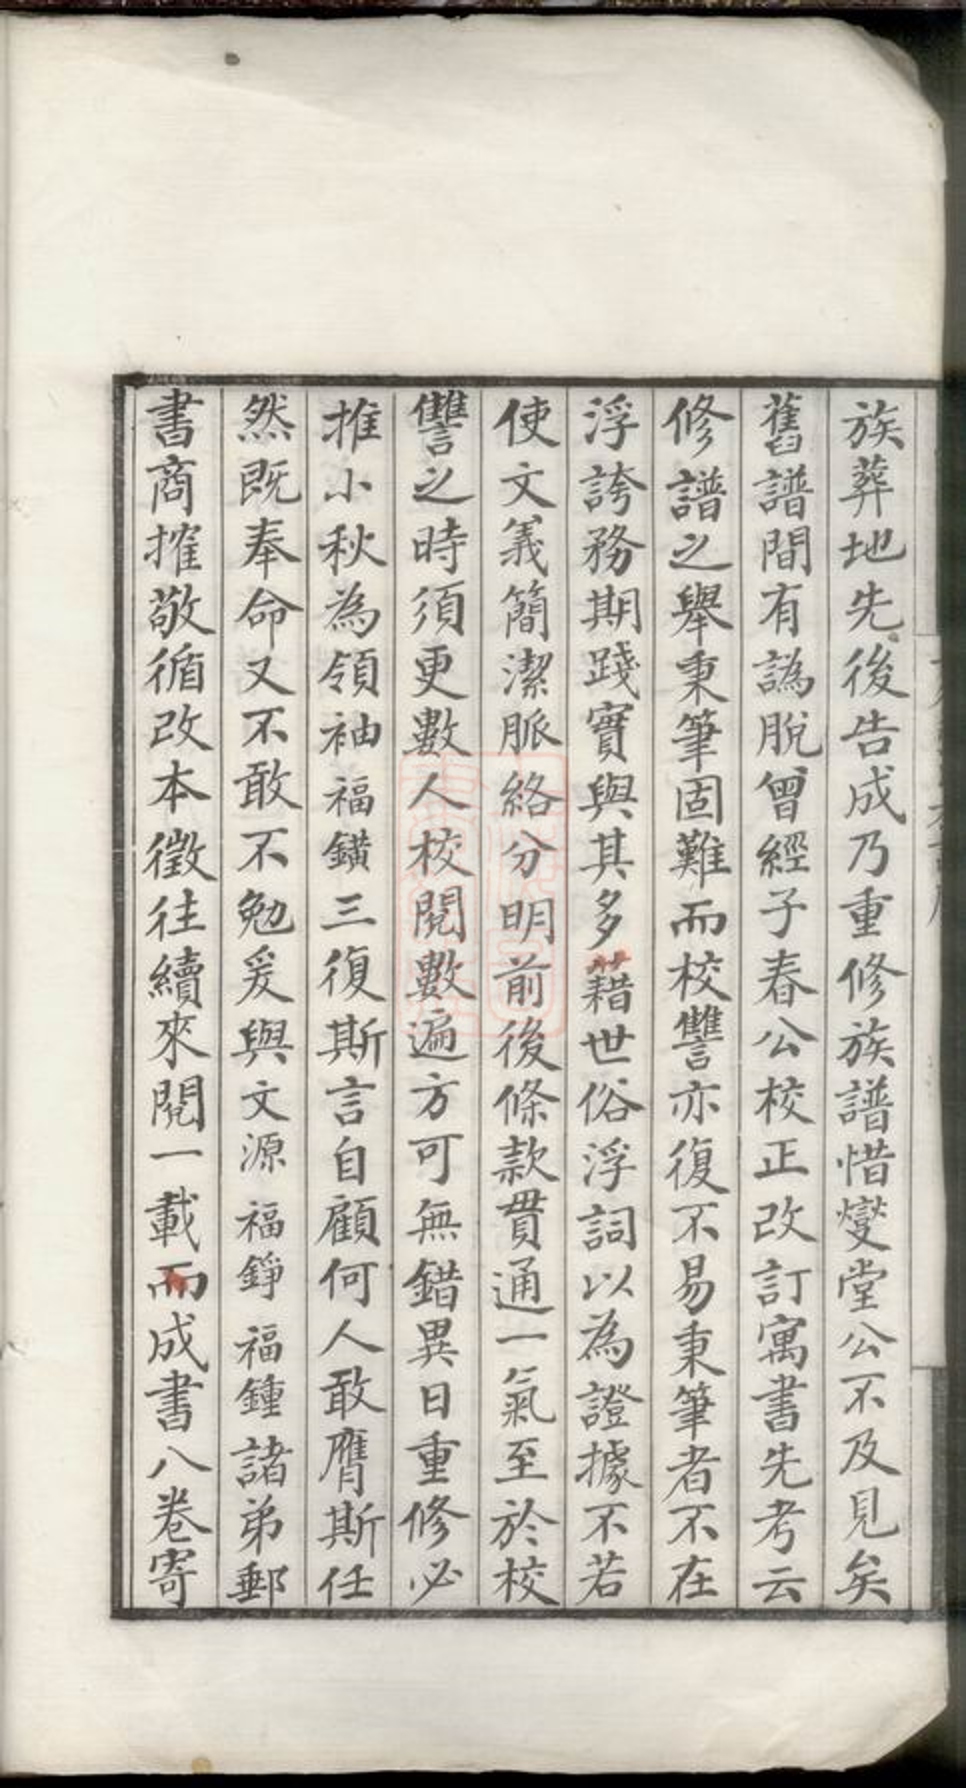 族葬地先後告成乃重修族譜惜燮堂公不及見矣
舊譜間有譌脫曾經子春公校正改訂寓書先考云
修譜之舉秉筆固難而校讐亦復不易秉筆者不在
浮誇務期踐實與其多籍世俗浮詞以為證據不若
使文義簡潔脈絡分明前後條款貫通一氣至於校
讐之時須更數人校閱數遍方可無錯異日重修必
推小秋為領袖福鐄三復斯言自顧何人敢膺斯任
然既奉命又不敢不勉爰與文源福錚福鍾諸弟郵
書商搉敬循改本徵往續來閱一載而成書八卷寄